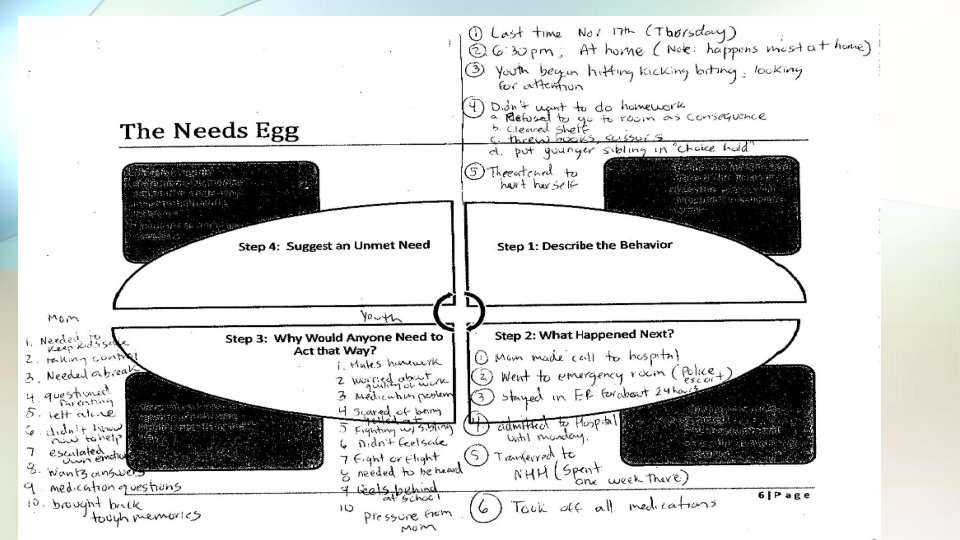 ① Last time Nov 17th (Thursday)
② 6:30pm, At home (Note: happens most at home)
③ Youth began hitting kicking biting, looking
for attention
④ Didn't want to do homework
a. Refused to go to room as consequence
b. Cleared shelf
c. threw books, scissors
d. put younger sibling in "choice hold"
⑤ Threatened to
hurt herself
The Needs Egg
Step 4: Suggest an Unmet Need
Step 1: Describe the Behavior
Mom
1. Needed to
keep kids safe
2. taking control
3. Needed a break
4. questioned
Parenting
5. felt alone
6. didn't know
how to help
7 escalated
own emotions
8. Wants answers
9. medication questions
10. brought back
tough memories
Youth
Step 3: Why Would Anyone Need to
Act that Way?
1. Hates homework
2 Worried about
quality of work
3 Medication problem
4 Scared of being
5 Fighting w/ sibling
6 Didn't feel safe
7 Fight or Flight
8 needed to be heard
9 feels behind
at school
10 Pressure from
Mom
Step 2: What Happened Next?
① Mom made call to hospital
② Went to emergency room (Police
escort)
③ stayed in ER for about 24 hours
④ admitted to Hospital
until monday.
⑤ Transferred to
NHH (Spent
one week there)
6|Page
⑥ Took off all medications